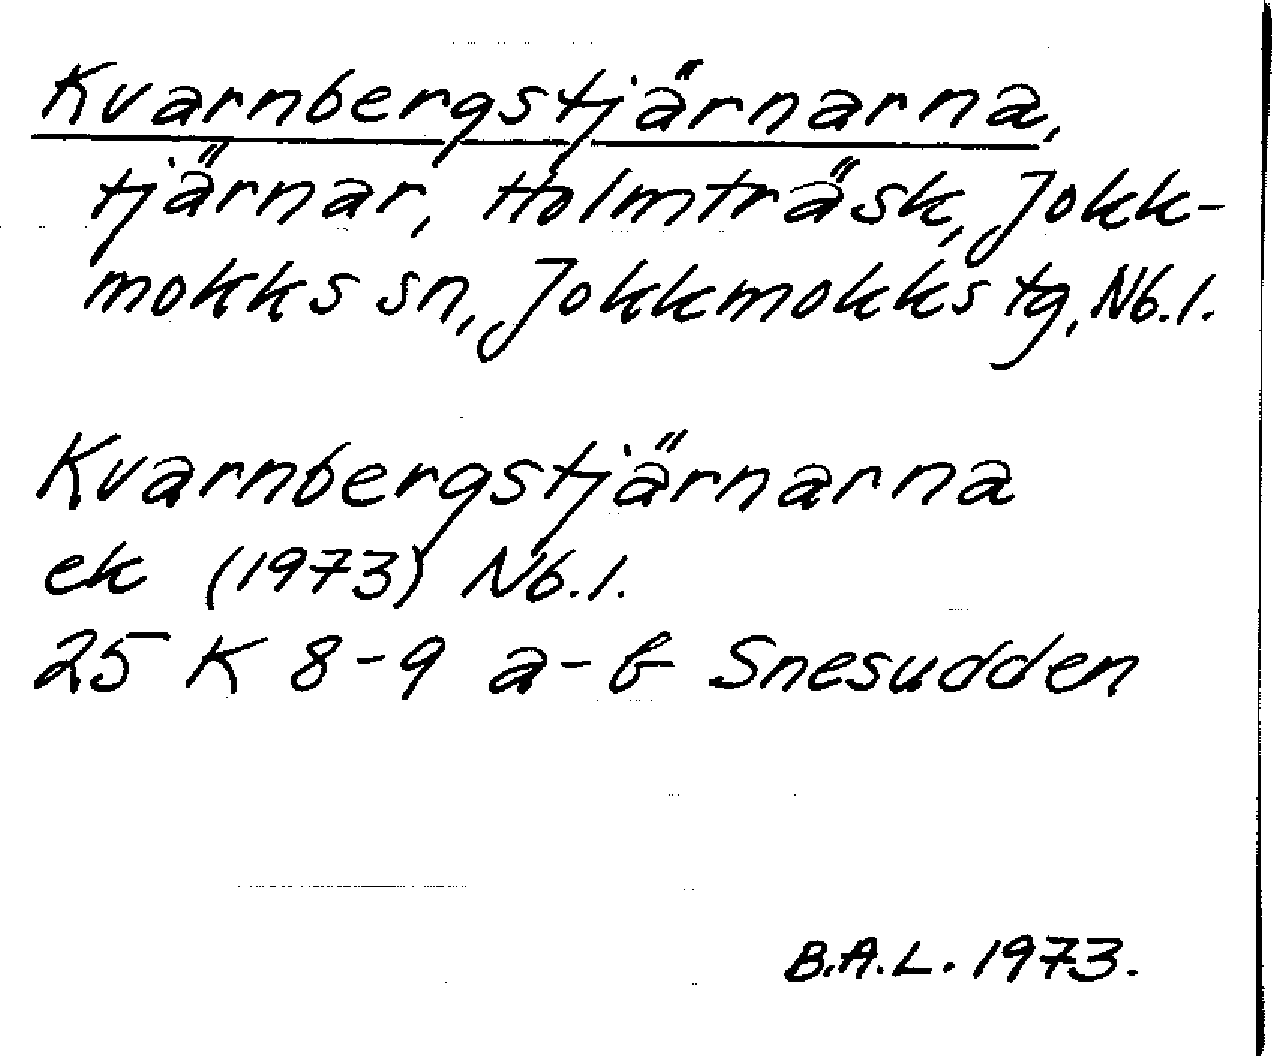 Kvarnbergstjärnarna,
tjärnar, Holmträsk, Jokk-
mokks sn, Jokkmokks tg, Nb.l.
Kvarnbergstjärnarna
ek (1973) Nb.l.
25 K 8-9 a-b Snesudden
B.A.L. 1973.